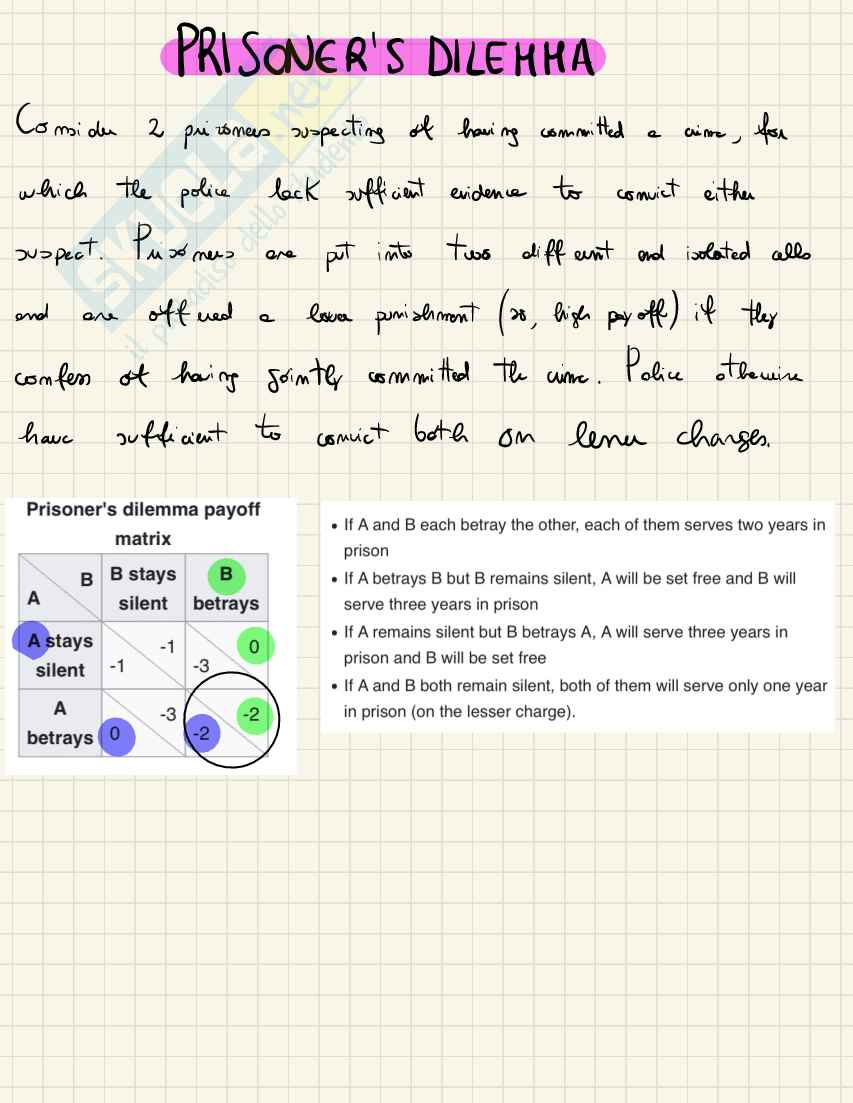 PRISONER'S DILEMMA
Consider 2 prisoners suspecting of having committed a crime, for
which the police lack sufficient evidence to convict either
suspect. Prisoners are put into two different and isolated cells
and are offered a lower punishment (so, high pay off) if they
confess of having jointly committed the crime. Police otherwise
have sufficient to convict both on lesser charges.
Prisoner's dilemma payoff
matrix
B
A
B stays
silent
B
betrays
A stays
silent
-1
-1
0
-3
A
betrays
-3
0
-2
-2
• If A and B each betray the other, each of them serves two years in
prison
• If A betrays B but B remains silent, A will be set free and B will
serve three years in prison
• If A remains silent but B betrays A, A will serve three years in
prison and B will be set free
• If A and B both remain silent, both of them will serve only one year
in prison (on the lesser charge).
SKUOLA.net
il paradiso dello studente